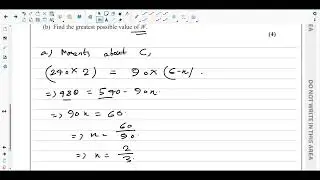 (b) Find the greatest possible value of W.
(4)
a) Moments about C,
(240 × 2) = 90 × (6-x).
=> 480 = 540 - 90x
=> 90x = 60
=> x = 60/90
=> x = 2/3
DO NOT WRITE IN THIS AREA